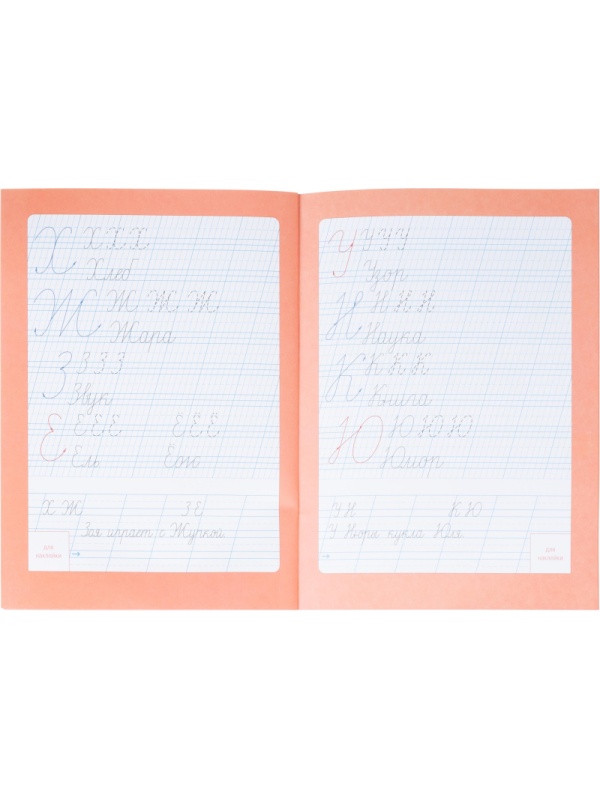 Х Х Х Х
Хлеб
Ж Ж Ж Ж
Жара
З З З З
Звук
Е Е Е Е Ё Ё Ё
Ель Ёж
Х Ж З Е
Зая играет с Журкой.
для наклейки
У У У У
Узор
Н Н Н Н
Наука
К К К К
Кошка
Ю Ю Ю Ю
Юмор
У Н К Ю
У Нюры кукла Юля.
для наклейки